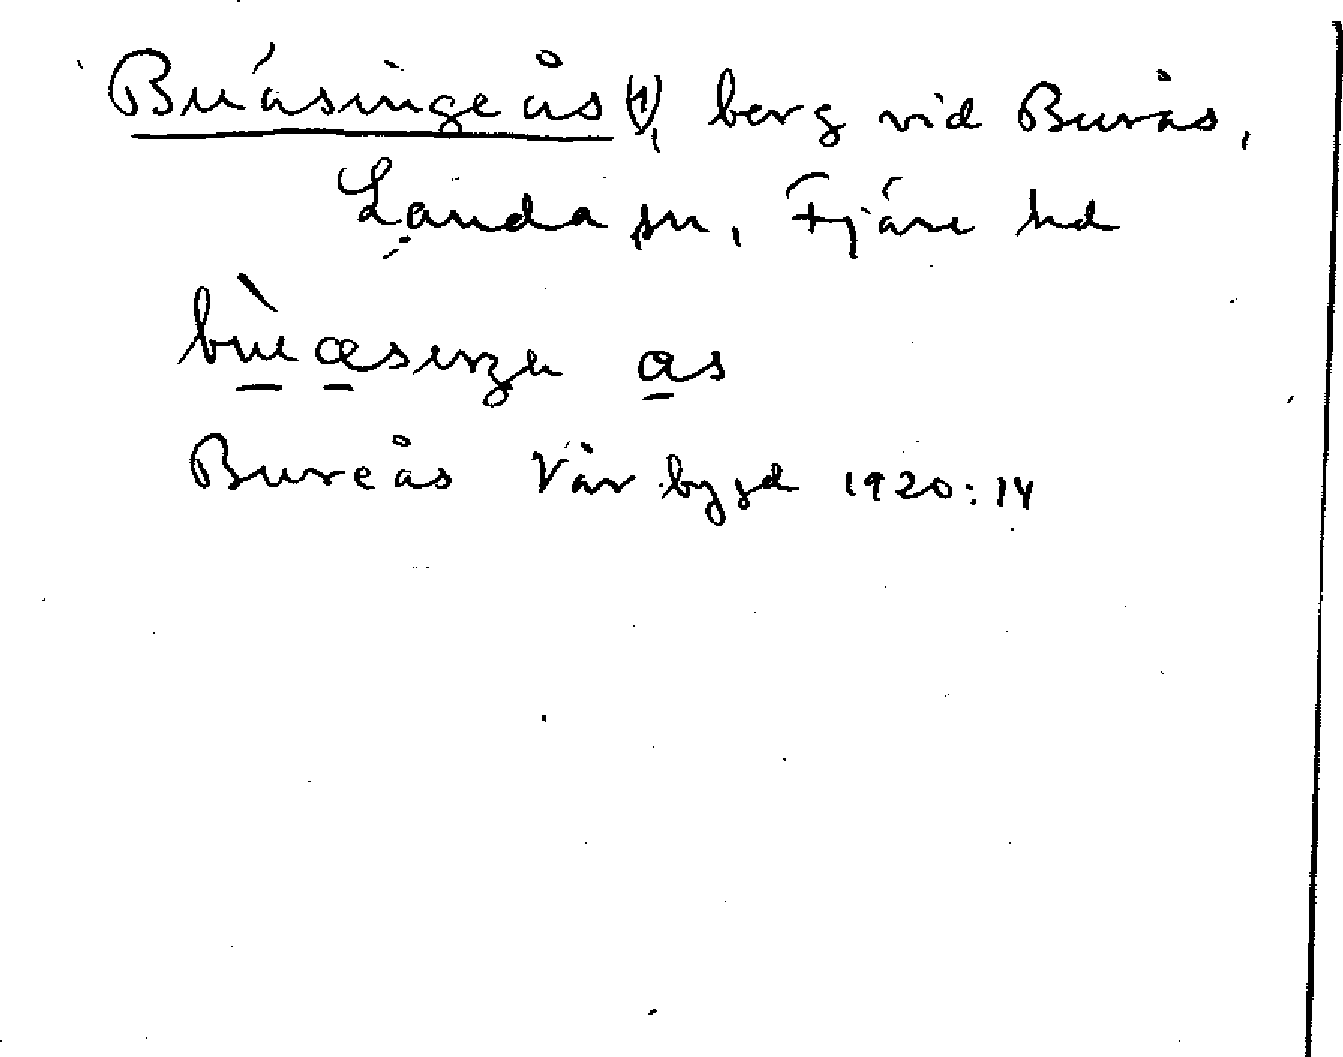 Buäsinge ås (?), berg vid Burås,
Landa sn, Fjäre hd
as
Bureås Vår bygd 1920:14